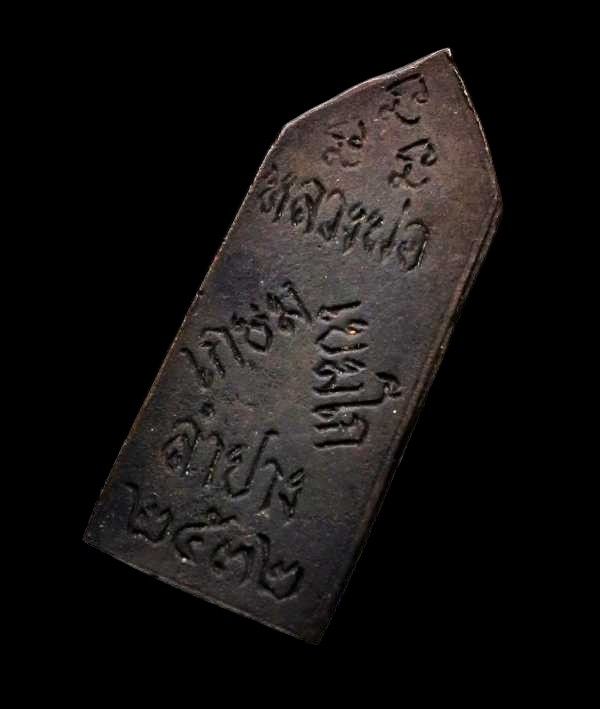 หลวงพ่อ
เกษม
เขมโก
ลำปาง
๒๕๓๒